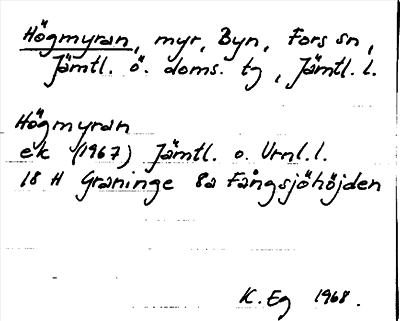 Högmyran, myr, Byn, Fors sn,
Jämtl. ö. doms. tg, Jämtl. l.
Högmyran
ek (1967) Jämtl. o. Vrnl. l.
18 H Graninge 8a Fångsjöhöjden
K. Eg 1968.